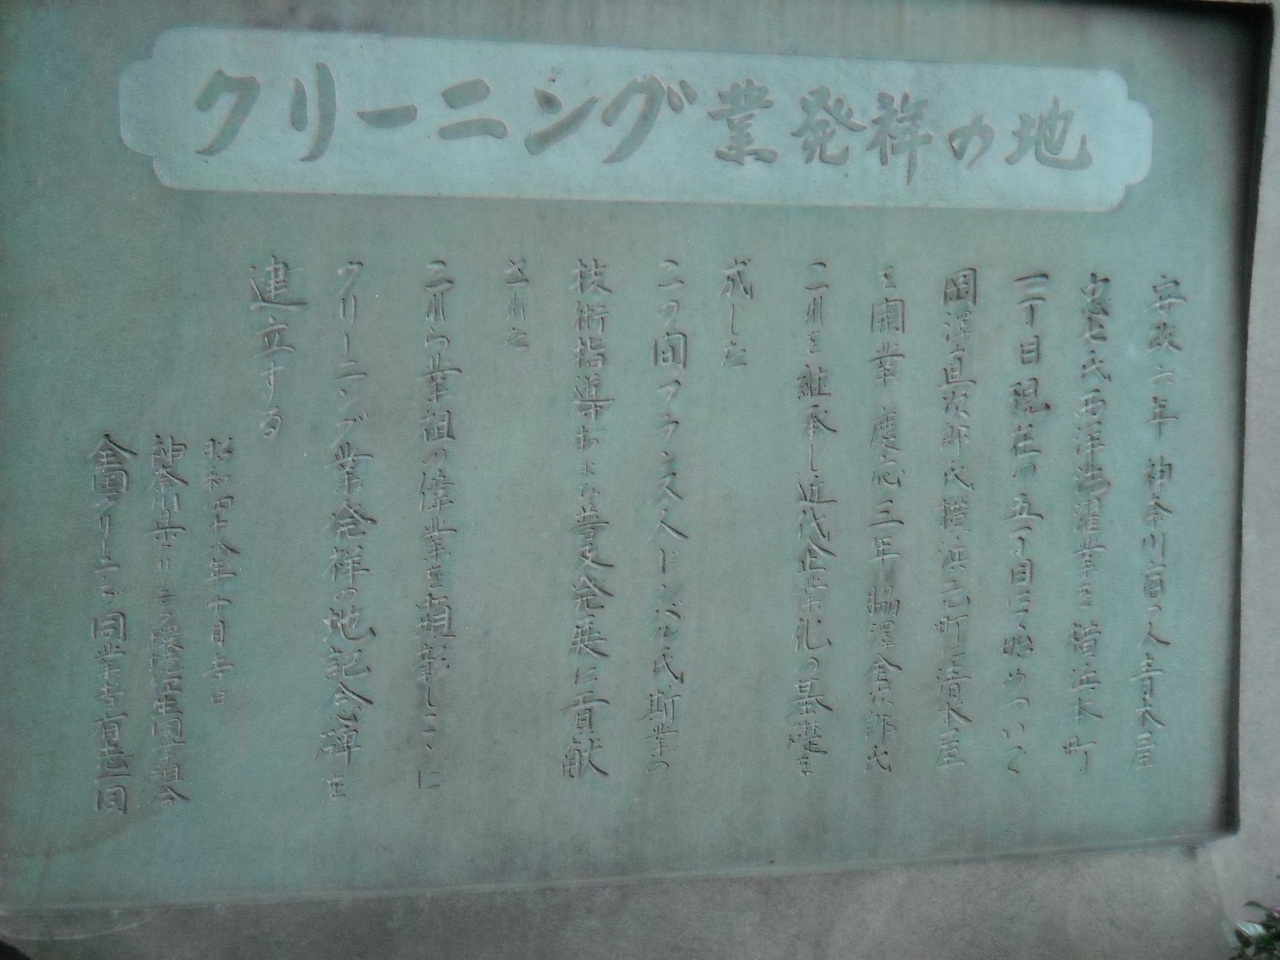 クリーニング業発祥の地
安政六年 神奈川宿の人青木屋
忠七氏西洋洗濯業を横浜本町
一丁目現在の五丁目にて始めついで
岡澤直次郎氏横浜元町に清水屋
を開業 慶応三年脇澤金次郎氏
これを継承し近代企業化の基礎を
成した
この間フランス人ドンバル氏斯業の
技術指導および普及発展に貢献
された
これら業祖の偉業を顕彰しここに
クリーニング業発祥の地記念碑を
建立する
昭和四十八年十月吉日
神奈川県クリーニング環境衛生同業組合
全国クリーニング同業者有志一同